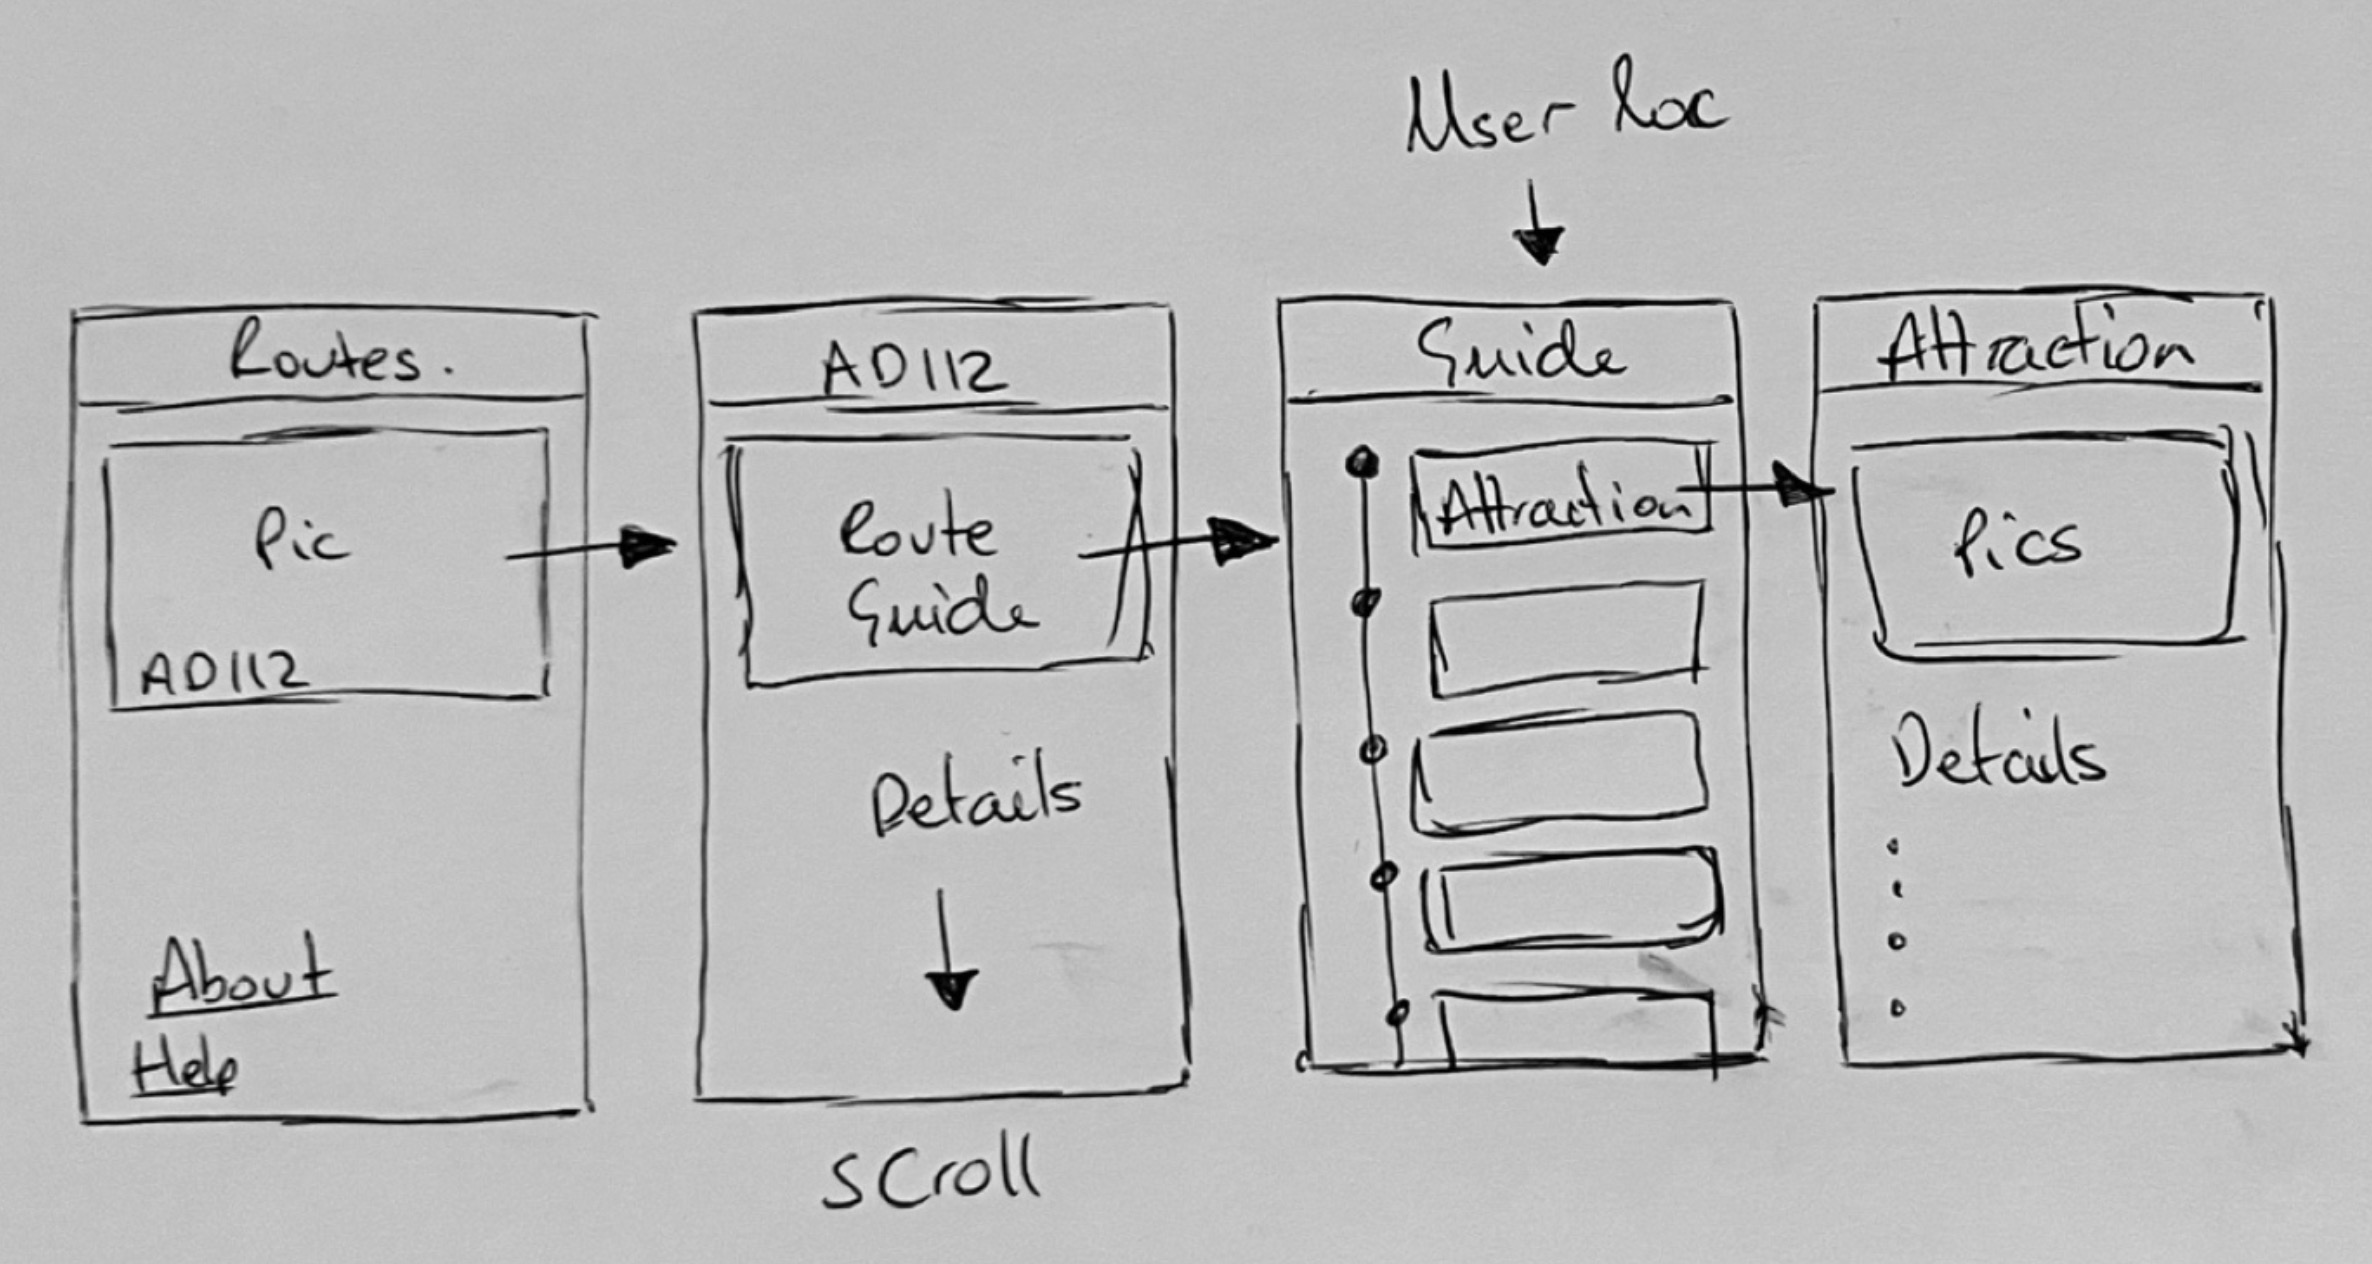 User Loc
Routes.
Pic
AD112
About
Help
AD112
Route
Guide
Details
SCroll
Guide
Attraction
Attraction
Pics
Details